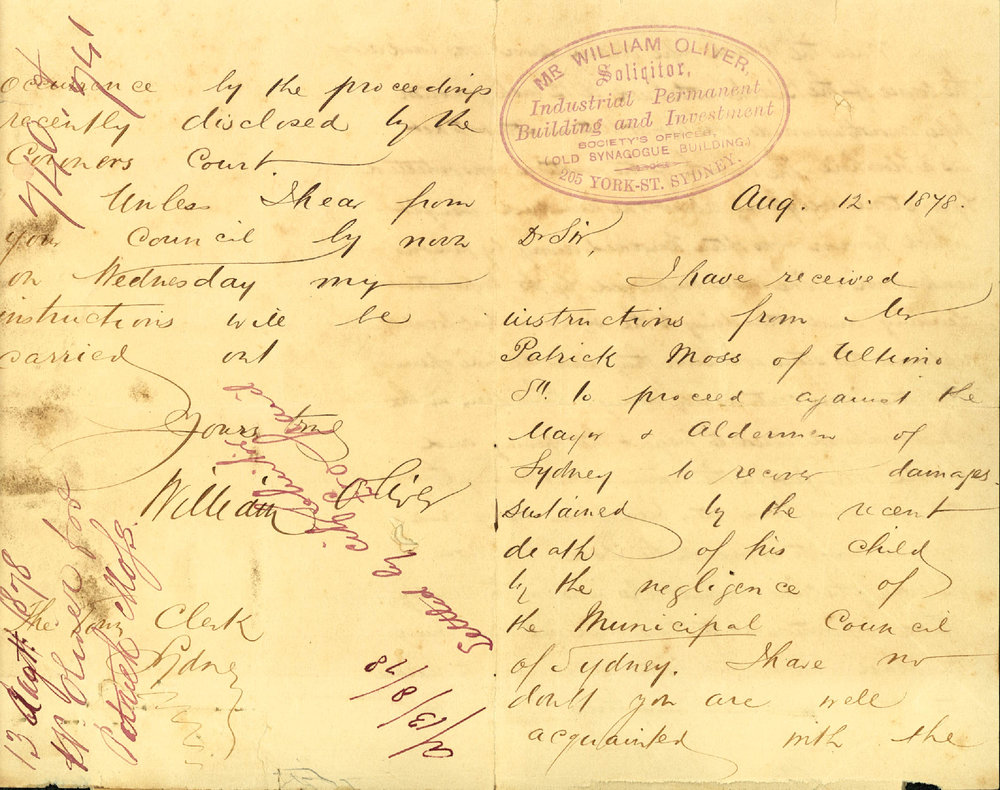 MR WILLIAM OLIVER,
Solicitor,
Industrial Permanent
Building and Investment
SOCIETY'S OFFICES,
(OLD SYNAGOGUE BUILDING,)
205 YORK-ST. SYDNEY.
Aug. 12. 1878.
Dr Sir,
I have received
instructions from Mr
Patrick Moss of Ultimo
St. to proceed against the
Mayor & Aldermen of
Sydney to recover damages
sustained by the recent
death of his child
by the negligence of
the Municipal Council
of Sydney. I have no
doubt you are well
acquainted with the
occurrence by the proceedings
recently disclosed by the
Coroners Court.
Unless I hear from
your Council by noon
on Wednesday my
instructions will be
carried out
Yours truly
William Oliver
The Town Clerk
Sydney
13 Augt. 1878
W Oliver for
Patrick Moss.
Settled by
13/8/78